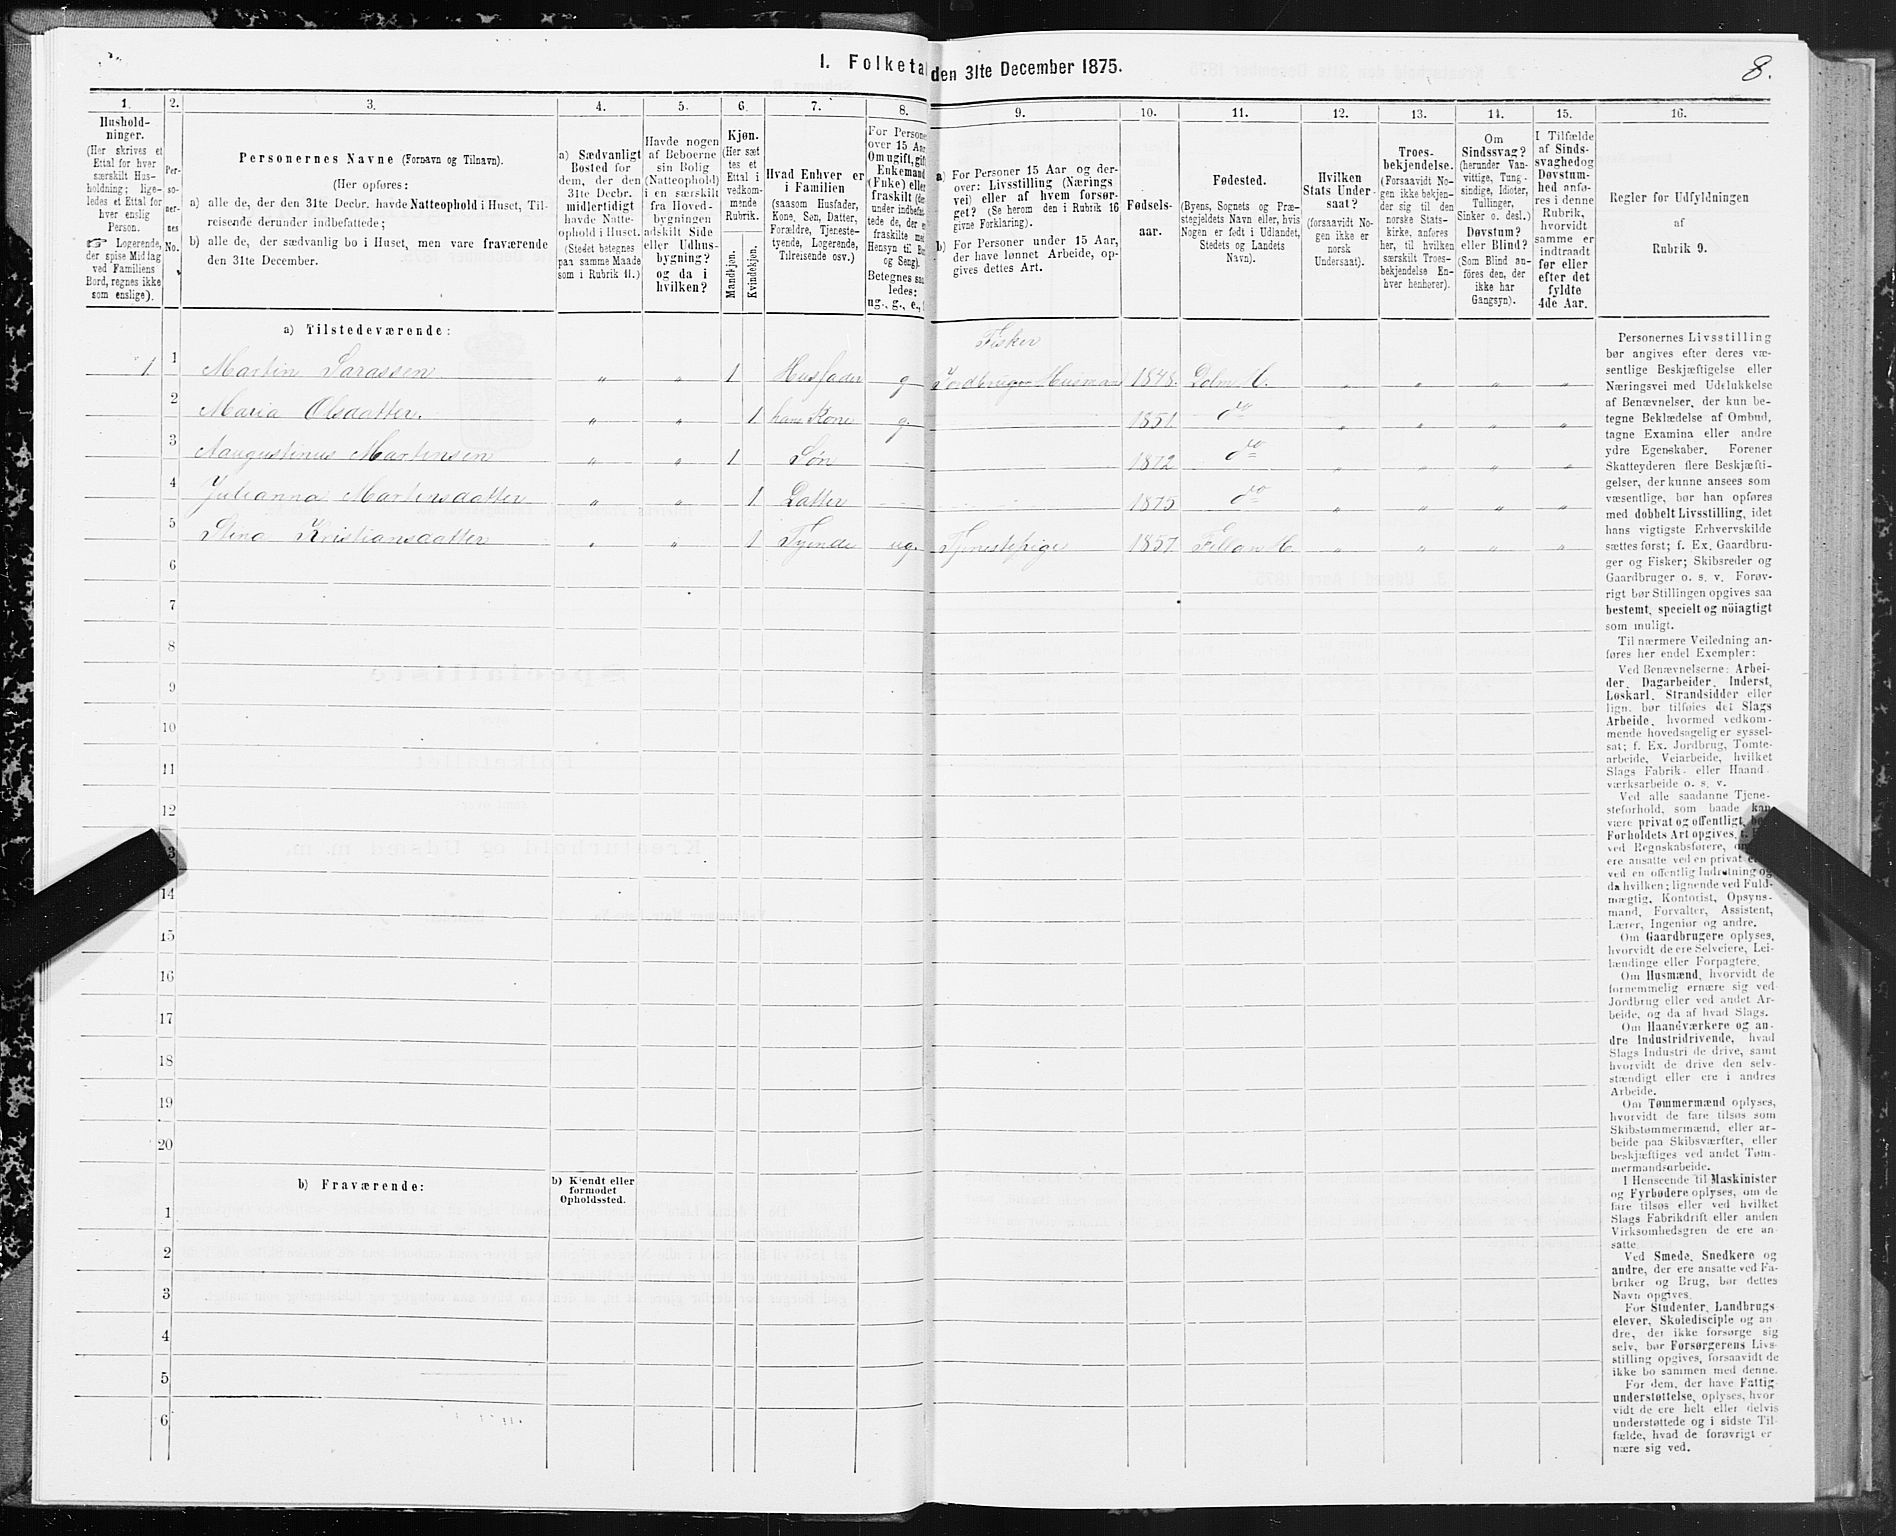 8.
I. Folketal den 31te December 1875.
1. 2. 3. 4. 5. 6. 7. 8. 9. 10. 11. 12. 13. 14. 15. 16.
Hushold-
ninger.
(Her skrives et
Ettal for hver
særskilt Hus-
holdning; lige-
ledes et Ettal for
hver enslig
Person.
☞ Logerende,
der spise Middag
ved Familiens
Bord, regnes ikke
som enslige).
Per-
so-
ner-
nes
No.
Personernes Navne (Fornavn og Tilnavn).
(Her opføres:
a) alle de, der den 31te Decbr. havde Natteophold i Huset, Til-
reisende derunder indbefattede;
b) alle de, der sædvanlig bo i Huset, men vare fraværende
den 31te December.
a) Sædvanligt
Bosted for
dem, der den
31te Decbr.
midlertidigt
havde Natte-
ophold i Huset.
(Stedet betegnes
paa samme Maade
som i Rubrik 11.)
Havde nogen
af Beboerne
sin Bolig
(Natteophold)
i en særskilt
fra Hoved-
bygningen
adskilt Side
eller Udhus-
bygning?
og da i
hvilken?
Kjøn.
(Her sæt-
tes et
Ettal i
vedkom-
mende
Rubrik.
Mandkjøn.
Kvindekjøn.
Hvad Enhver er
i Familien
(saasom Husfader,
Kone, Søn, Datter,
Forældre, Tjeneste-
tyende, Logerende,
Tilreisende osv.)
For Persone
over 15 Aar
Om ugift, gift
Enkemand
(Enke) elle
fraskilt (de
under indbefat
tede de, der e
fraskilte med
Hensyn til Bo
og Seng).
Betegnes saa
ledes:
ug., g., e.,
a) For Personer 15 Aar og der-
over: Livsstilling (Nærings
vei) eller af hvem forsør-
get? (Se herom den i Rubrik 16
givne Forklaring).
b) For Personer under 15 Aar,
der have lønnet Arbeide, op-
gives dettes Art.
Fødsels-
aar.
Fødested.
(Byens, Sognets og Præ-
stegjeldets Navn eller, hvis
Nogen er født i Udlandet,
Stedets og Landets
Navn).
Hvilken
Stats Under-
saat?
(forsaavidt No-
gen ikke er
norsk
Undersaat).
Troes-
bekjendelse.
(Forsaavidt No-
gen ikke bekjen-
der sig til den
norske Stats-
kirke, anføres
her, til hvilken
særskilt Troes-
bekjendelse En-
hver henhører).
Om
Sindssvag?
(herunder Van-
vittige, Tung-
sindige, Idioter,
Tullinger,
Sinker o. desl.)
Døvstum?
eller Blind?
(Som Blind an-
føres den, der
ikke har
Gangsyn).
I Tilfælde
af Sinds-
svaghed og
Døvstum-
hed anfø-
res i denne
Rubrik,
hvorvidt
samme er
indtraadt
før eller
efter det
fyldte
4de Aar.
Regler for Udfyldningen
af
Rubrik 9.
a) Tilstedeværende:
Fisker
1. 1 Martin Larassen " " 1 Husfader g Jordbruger Husman 1848. Dolm H. " " " "
2 Maria Olsdatter. " " 1 hans Kone g 1851. do " " " "
3 Aaugustinus Martinsen " " 1 Søn 1872 do " " " "
4 Julianna Martinsdatter " " 1 Datter 1875 do " " " "
5 Stina Kristiansdatter " " 1 Tyende ug. Tjenestepige 1857 Fillan H. " " " "
6
7
8
9
10
11
12
13
14
15
16
17
18
19
20
b) Fraværende:
b) Kjendt eller
formodet
Opholdssted.
1
2
3
4
5
6
Personernes Livsstilling
bør angives efter deres væ-
sentlige Beskjæftigelse eller
Næringsvei med Udelukkelse
af Benævnelser, der kun be-
tegne Beklædelse af Ombud,
tagne Examina eller andre
ydre Egenskaber. Forener
Skatteyderen flere Beskjæfti-
gelser, der kunne ansees som
væsentlige, bør han opføres
med dobbelt Livsstilling, idet
hans vigtigste Erhvervskilde
sættes først; f. Ex. Gaardbru-
ger og Fisker; Skibsreder og
Gaardbruger o. s. v. Forøv-
rigt bør Stillingen opgives saa
bestemt, specielt og nöiagtigt
som muligt.
Til nærmere Veiledning an-
føres her endel Exempler:
Ved Benævnelserne: Arbei-
der, Dagarbeider, Inderst,
Løskarl, Strandsidder eller
lign. bør tilføies det Slags
Arbeide, hvormed vedkom-
mende hovedsagelig er syssel-
sat; f. Ex. Jordbrug, Tomte-
arbeide, Veiarbeide, hvilket
Slags Fabrik- eller Haand-
værksarbeide o. s. v.
Ved alle saadanne Tjene-
steforhold, som baade kan
være privat og offentligt, bør
Forholdets Art opgives,
ved Regnskabsførere,
ere ansatte ved en privat
ved en offentlig Indretning og
da hvilken; lignende ved Fuld-
mægtig, Kontorist, Opsyns-
mand, Forvalter, Assistent,
Lærer, Ingeniør og andre.
Om Gaardbrugere oplyses,
hvorvidt de ere Selveiere, Lei-
lændinge eller Forpagtere.
Om Husmænd, hvorvidt de
fornemmelig ernære sig ved
Jordbrug eller ved andet Ar-
beide, og da af hvad Slags.
Om Haandværkere og an-
dre Industridrivende, hvad
Slags Industri de drive, samt
hvorvidt de drive den selv-
stændigt eller ere i andres
Arbeide.
Om Tømmermænd oplyses,
hvorvidt de fare tilsøs som
Skibstømmermænd, eller ar-
beide paa Skibsværfter, eller
beskjæftiges ved andet Tøm-
mermandsarbeide.
I Henseende til Maskinister
og Fyrbødere oplyses, om de
fare tilsøs eller ved hvilket
Slags Fabrikdrift eller anden
Virksomhedsgren de ere an-
satte.
Ved Smede, Snedkere og
andre, der ere ansatte ved Fa-
briker og Brug, bør dettes
Navn opgives.
For Studenter, Landbrugs-
elever, Skoledisciple og an-
dre, der ikke forsørge sig
selv, bør Forsørgerens Livs-
stilling opgives, forsaavidt de
ikke bo sammen med denne.
For dem, der have Fattig-
understøttelse, oplyses, hvor-
vidt de ere helt eller delvis
understøttede og i sidste Til-
fælde, hvad de forøvrigt er-
nære sig ved.